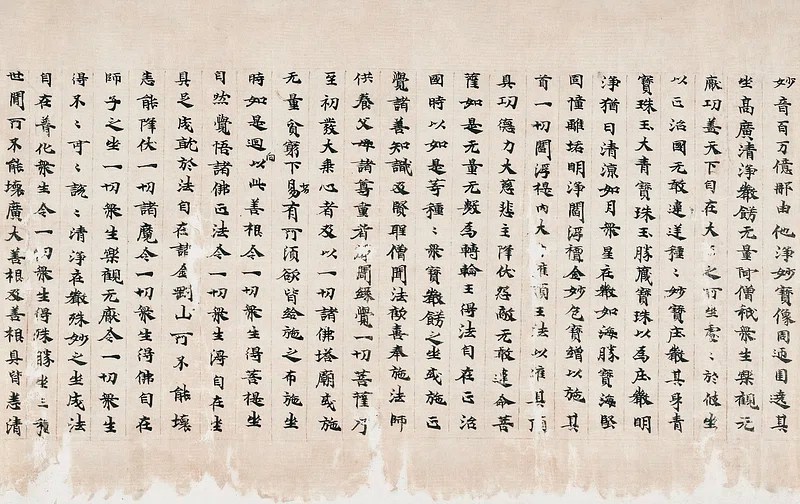 妙音百万億那由他淨妙寶像周通圍遶其
坐高廣清淨嚴餝无量阿僧祇衆生樂觀无
厭功善天下自在大王之所坐處〻於彼坐
以正治國无敢違逆種〻妙寶庄嚴其身青
寶珠王大青寶珠王勝藏寶珠以爲庄嚴明
淨猶日清涼如月衆星在嚴如海勝寶海堅
固幢離垢明淨閻浮檀金妙色寶繒以施其
首一切閻浮提内大灌頂王法以灌其頂
具功德力大慈悲主降伏怨敵无敢違命菩
薩如是无量无數爲轉輪王得法自在正治
國時以如是等種〻衆寶嚴餝之坐或施正
覺諸善知識及賢聖僧聞法歡喜奉施法師
供養父母諸尊重者聲聞緣覺一切菩薩乃
至初發大乘心者及以一切諸佛塔廟或施
无量貧窮下賤有所須欲皆給施之布施坐
時如是迴向以此善根令一切衆生得菩提坐
自然覺悟諸佛正法令一切衆生得自在坐
具足成就於法自在諸金剛山所不能壞
悉能降伏一切諸魔令一切衆生得佛自在
師子之坐一切衆生樂觀无厭令一切衆生
得不〻可〻說〻清淨莊嚴殊妙之坐成法
自在善化衆生令一切衆生得殊勝坐三種
世間所不能壞廣大善根及善根具皆悉清